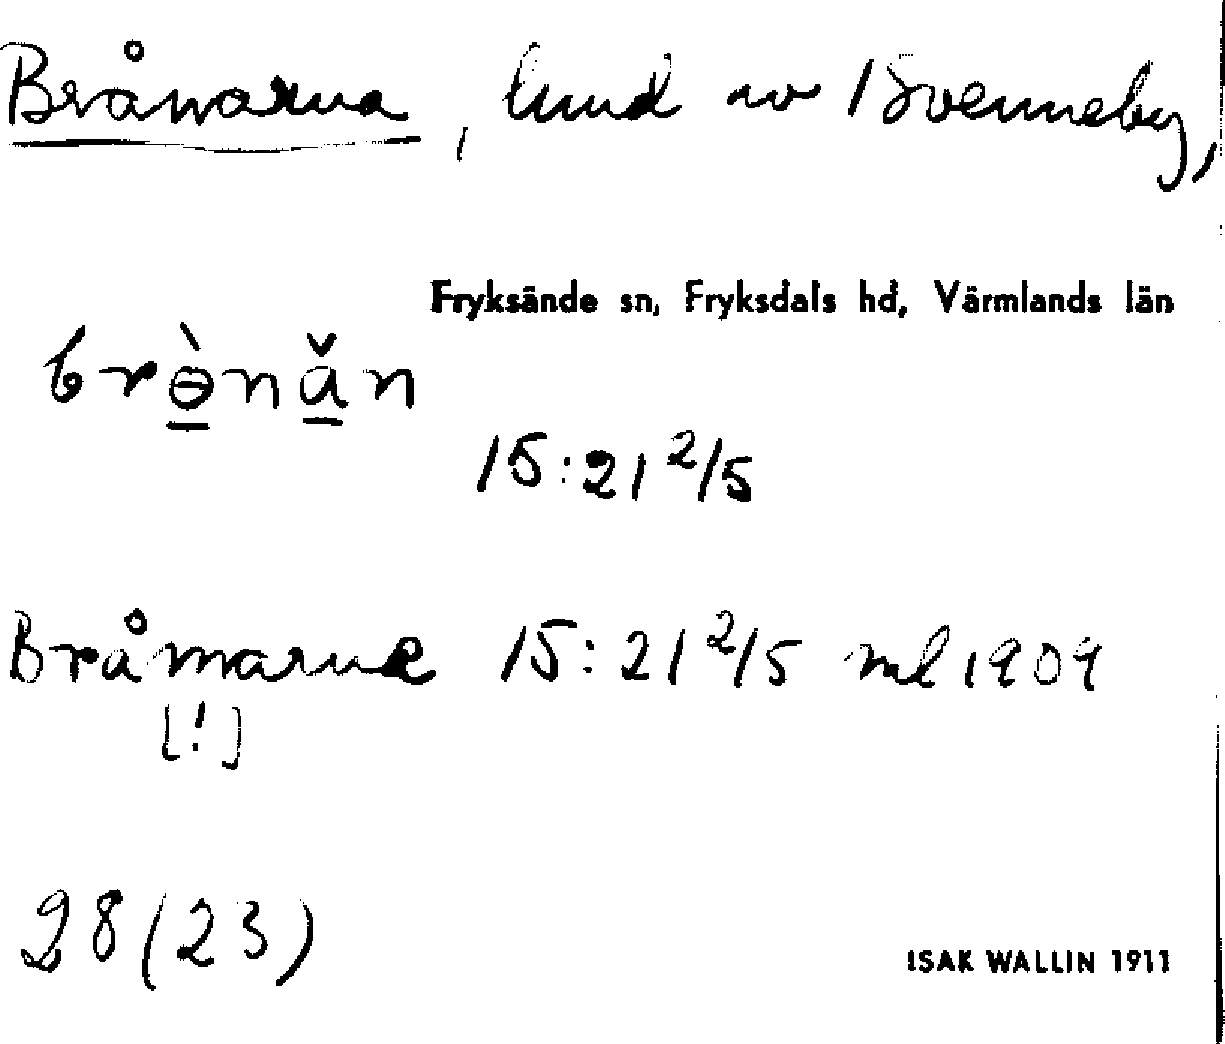 Brånarna, lund av 15 Svenneby,
Fryksände sn, Fryksdals hd, Värmlands län
brɵ̠̀nа̠̌n
15:21 2/5
Bråmarne 15:21 2/5 ml 1909
[!]
28 (23)
ISAK WALLIN 1911